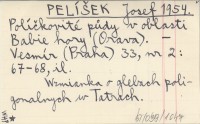 PELÍŠEK Josef 1954.
Políčkovité půdy v oblasti
Babie hory (Orava). —
Vesmír (Praha) 33, nr 2:
67-68, il.
Wzmianka o glebach poli-
gonalnych w Tatrach.